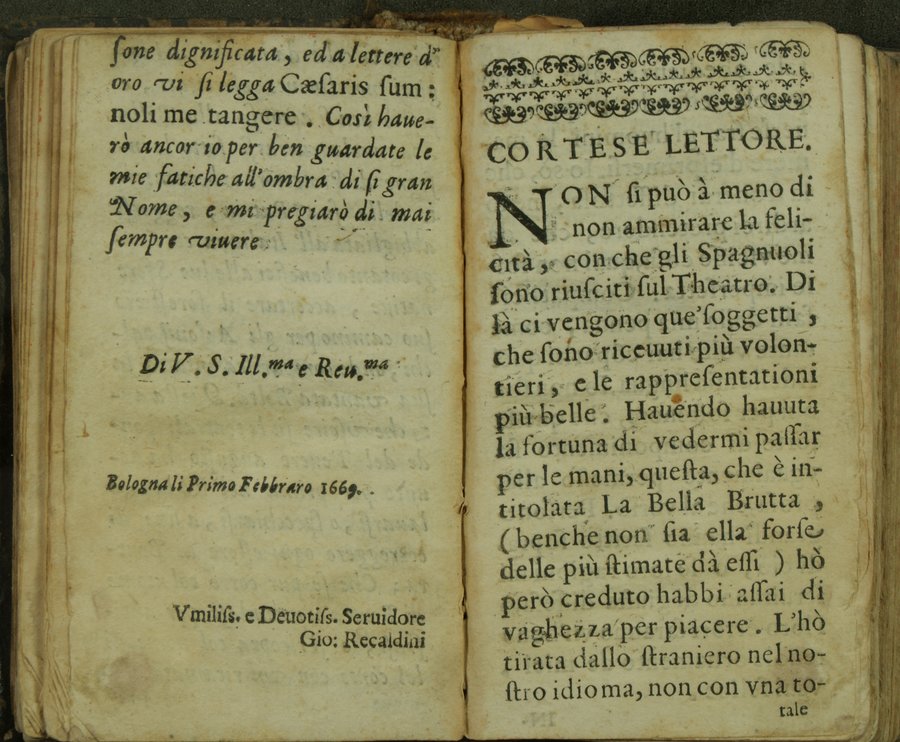 ſone dignificata, ed a lettere d'
oro vi ſi legga Cæſaris ſum:
noli me tangere. Così haue-
rò ancor io per ben guardate le
mie fatiche all'ombra di ſi gran
Nome, e mi pregiarò di mai
ſempre viuere.
Di V. S. Ill.ma e Reu.ma
Bologna li Primo Febbraro 1669.
Vmiliſs. e Deuotiſs. Seruidore
Gio: Recaldini
CORTESE LETTORE.
NON ſi può à meno di
non ammirare la feli-
cità, con che gli Spagnuoli
ſono riuſciti ſul Theatro. Di
là ci vengono que'ſoggetti,
che ſono riceuuti più volon-
tieri, e le rappreſentationi
più belle. Hauendo hauuta
la fortuna di vedermi paſſar
per le mani, queſta, che è in-
titolata La Bella Brutta,
(benche non ſia ella forſe
delle più ſtimate dà eſſi) hò
però creduto habbi aſſai di
vaghezza per piacere. L'hò
tirata dallo ſtraniero nel no-
ſtro idioma, non con vna to-
tale